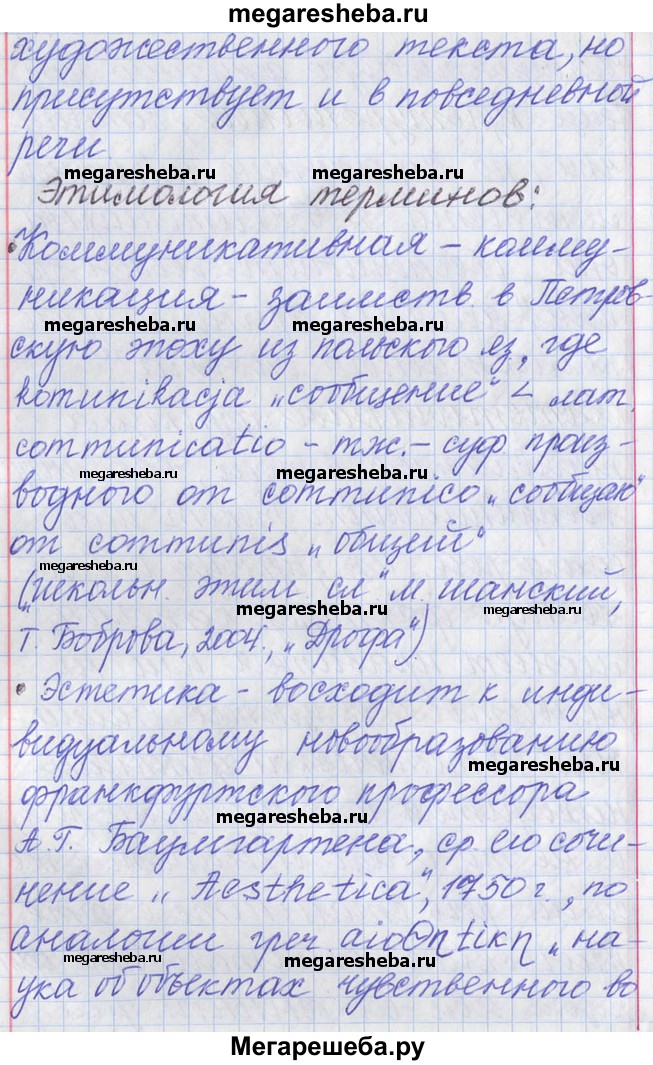 megaresheba.ru
художественного текста, но
присутствует и в повседневной
речи
megaresheba.ru megaresheba.ru
Этимология терминов:
• Коммуникативная – комму-
никация – заимств. в Петров-
megaresheba.ru megaresheba.ru
скую эпоху из польского яз, где
komunikacja „сообщение" < лат.
communicatio – тж. – суф. произ-
megaresheba.ru megaresheba.ru
водного от communico „сообщаю"
от communis „общей"
megaresheba.ru
(„школьн. этим. сл" М. Шанский,
megaresheba.ru megaresheba.ru
Т. Боброва, 2004., „Дрофа")
• Эстетика – восходит к инди-
видуальному новообразованию
megaresheba.ru
франкфуртского профессора
megaresheba.ru
А.Г. Баумгартена, ср. его сочи-
нение „Aesthetica", 1750 г., по
аналогии греч. αισΘηtικη „на-
megaresheba.ru megaresheba.ru
ука об объектах чувственного во
Мегарешеба.ру